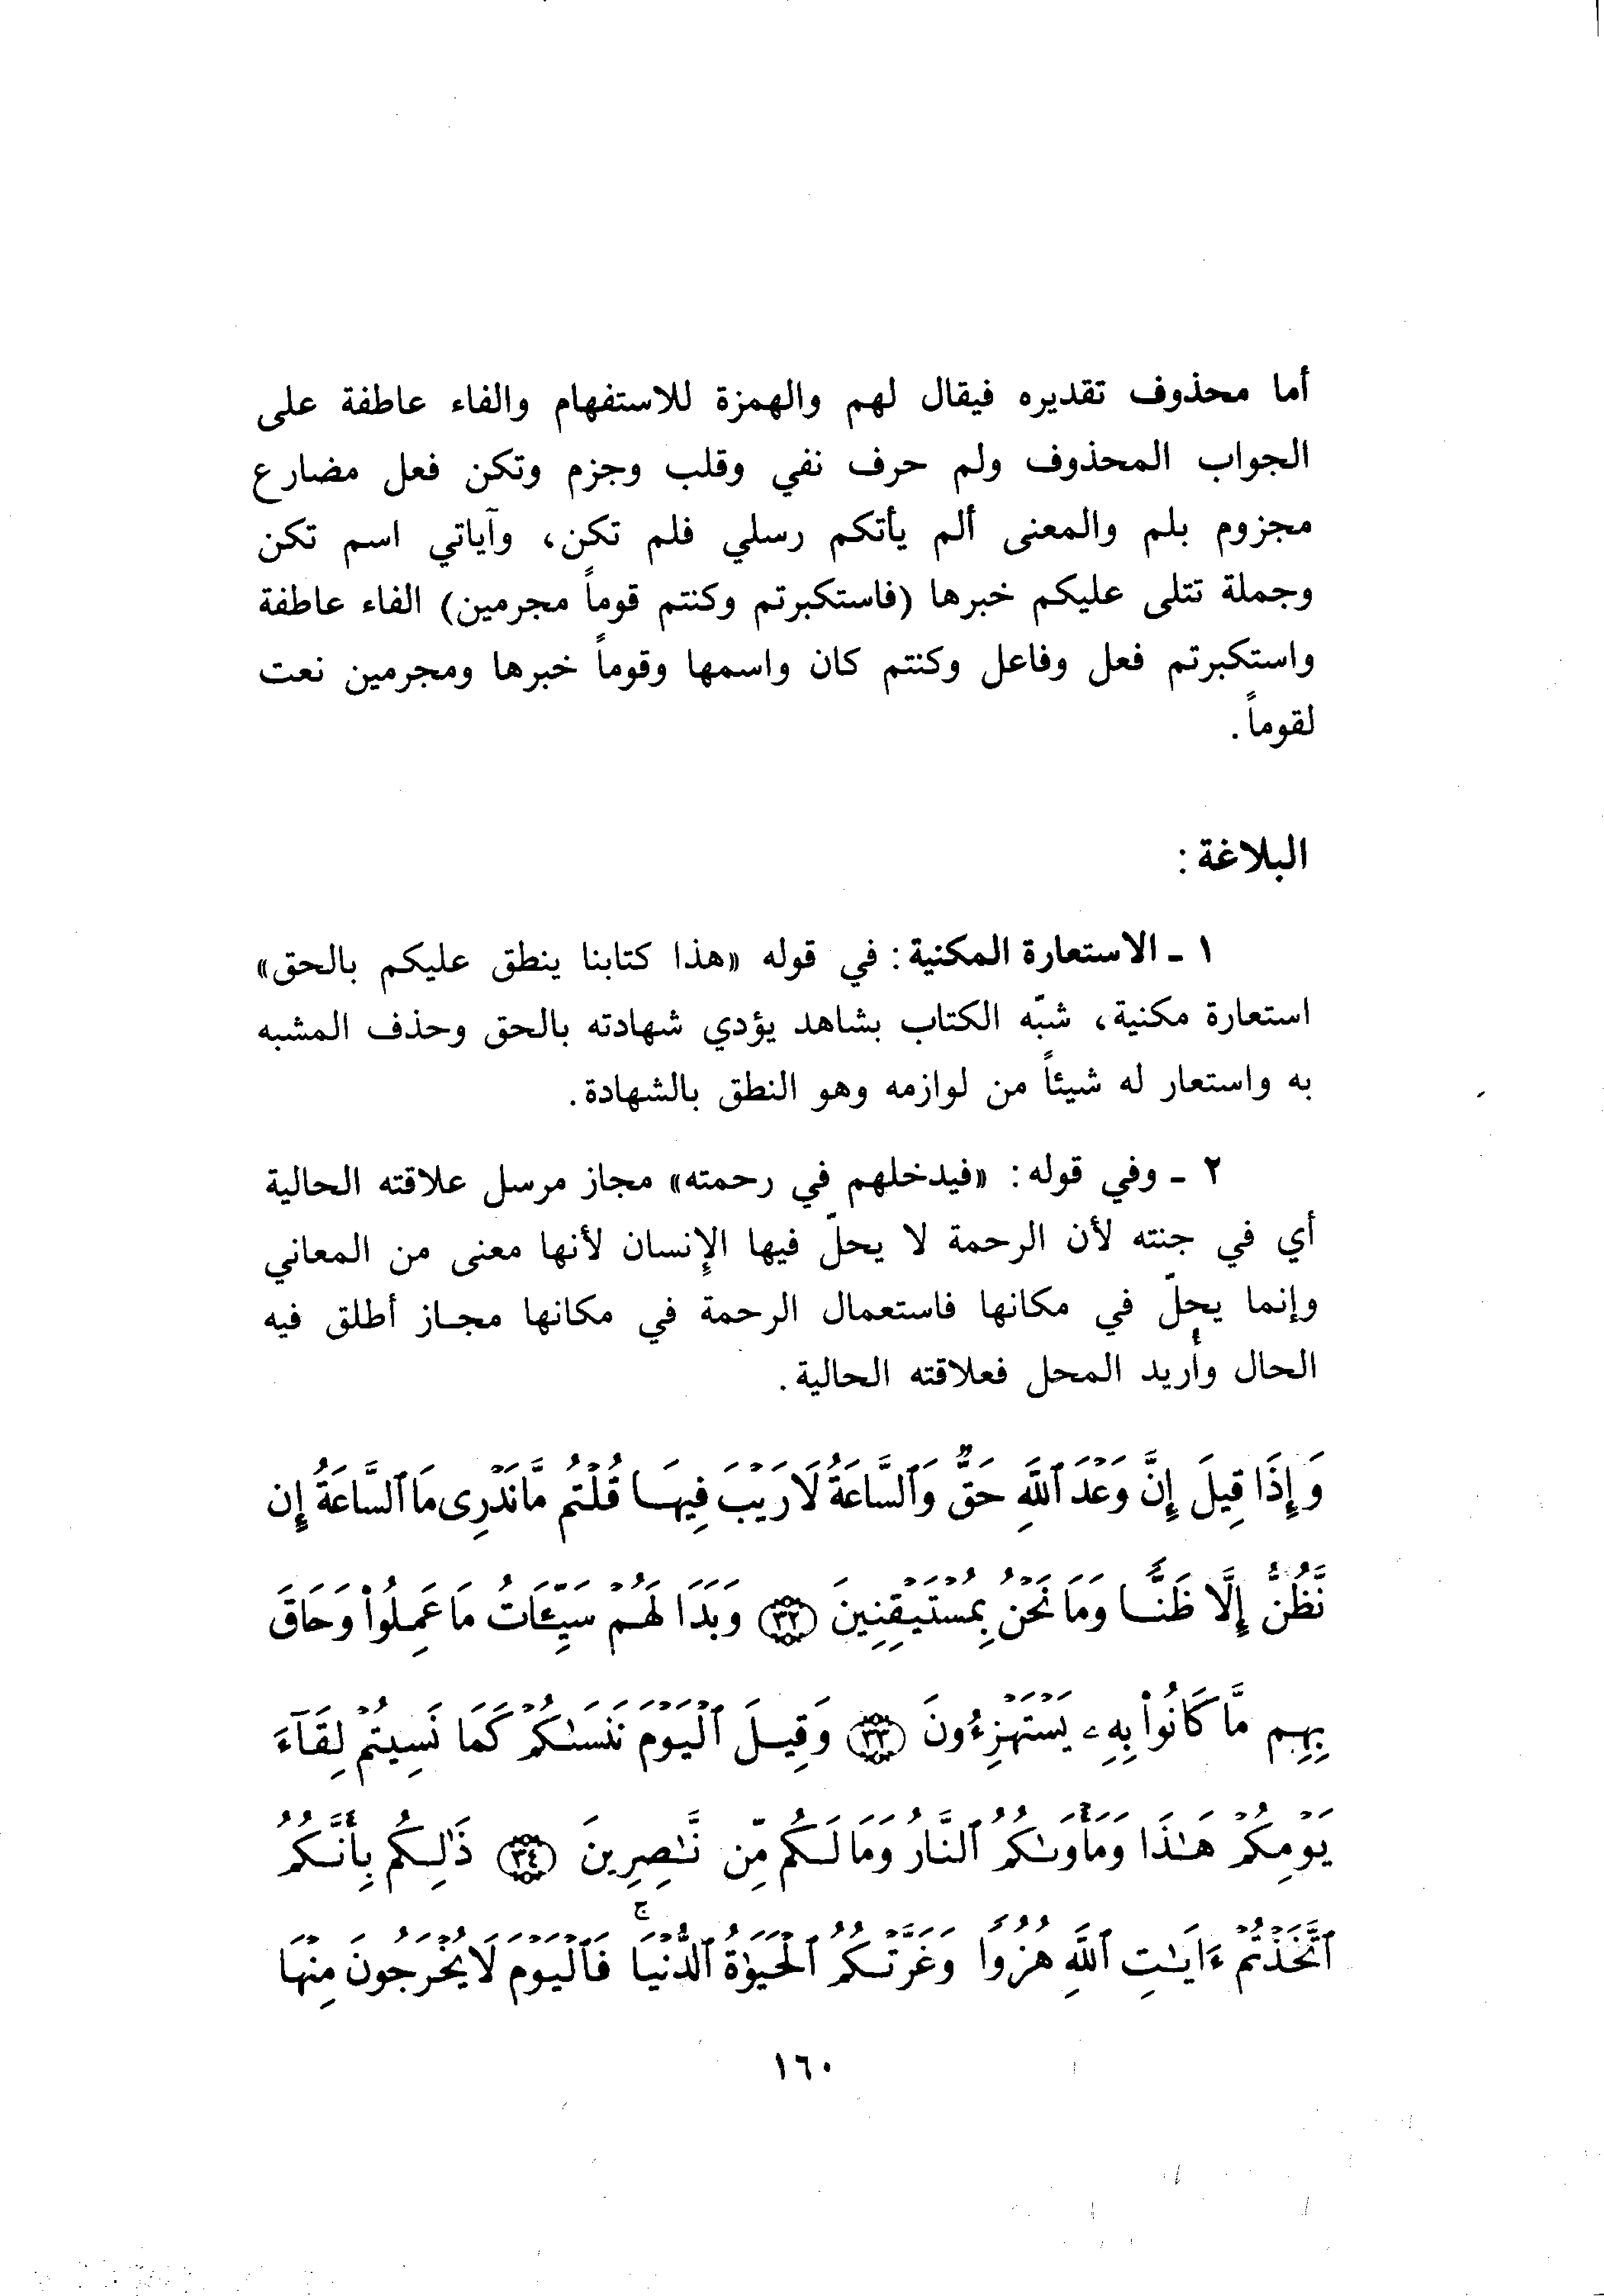 أما محذوف تقديره فيقال لهم والهمزة للاستفهام والفاء عاطفة على
الجواب المحذوف ولم حرف نفي وقلب وجزم وتكن فعل مضارع
مجزوم بلم والمعنى ألم يأتكم رسلي فلم تكن، وآياتي اسم تكن
وجملة تتلى عليكم خبرها (فاستكبرتم وكنتم قوماً مجرمين) الفاء عاطفة
واستكبرتم فعل وفاعل وكنتم كان واسمها وقوماً خبرها ومجرمين نعت
لقوماً.
البلاغة:
١ ـ الاستعارة المكنية: في قوله «هذا كتابنا ينطق عليكم بالحق»
استعارة مكنية، شبّه الكتاب بشاهد يؤدي شهادته بالحق وحذف المشبه
به واستعار له شيئاً من لوازمه وهو النطق بالشهادة.
٢ ـ وفي قوله: «فيدخلهم في رحمته» مجاز مرسل علاقته الحالية
أي في جنته لأن الرحمة لا يحلّ فيها الإنسان لأنها معنى من المعاني
وإنما يحلّ في مكانها فاستعمال الرحمة في مكانها مجاز أطلق فيه
الحال وأريد المحل فعلاقته الحالية.
وَإِذَا قِيلَ إِنَّ وَعْدَ ٱللَّهِ حَقٌّ وَٱلسَّاعَةُ لَا رَيْبَ فِيهَا قُلْتُم مَّا نَدْرِى مَا ٱلسَّاعَةُ إِن
نَّظُنُّ إِلَّا ظَنًّا وَمَا نَحْنُ بِمُسْتَيْقِنِينَ ٣٢ وَبَدَا لَهُمْ سَيِّـَٔاتُ مَا عَمِلُوا۟ وَحَاقَ
بِهِم مَّا كَانُوا۟ بِهِۦ يَسْتَهْزِءُونَ ٣٣ وَقِيلَ ٱلْيَوْمَ نَنسَىٰكُمْ كَمَا نَسِيتُمْ لِقَآءَ
يَوْمِكُمْ هَـٰذَا وَمَأْوَىٰكُمُ ٱلنَّارُ وَمَا لَكُم مِّن نَّـٰصِرِينَ ٣٤ ذَٰلِكُم بِأَنَّكُمُ
ٱتَّخَذْتُمْ ءَايَـٰتِ ٱللَّهِ هُزُوًا وَغَرَّتْكُمُ ٱلْحَيَوٰةُ ٱلدُّنْيَا ۚ فَٱلْيَوْمَ لَا يُخْرَجُونَ مِنْهَا
١٦٠